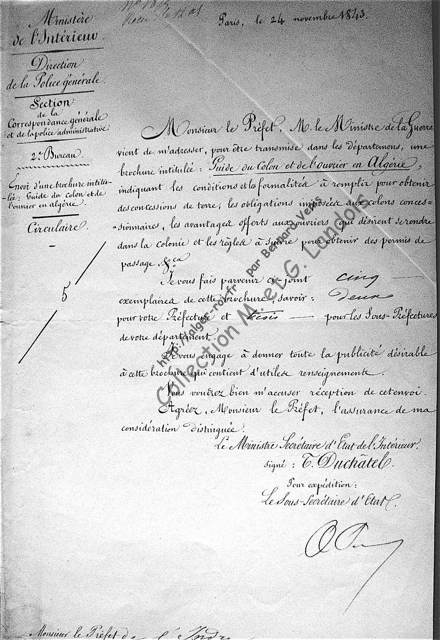 Ministère
de l'Intérieur.
Direction
de la Police générale.
Section
de la
Correspondance générale
et de la police administrative
2e Bureau.
Envoi d'une brochure intitu-
lée: Guide du Colon et de
l'ouvrier en Algérie.
Circulaire
5
Paris, le 24 novembre 1843.
Monsieur le Préfet, M. le Ministre de la Guerre
vient de m'adresser, pour être transmise dans les départemens, une
brochure intitulée: Guide du Colon et de l'ouvrier en Algérie,
indiquant les conditions et formalités à remplir pour obtenir
des concessions de terre, les obligations imposées aux colons conces-
sionnaires, les avantages offerts aux ouvriers qui désirent se rendre
dans la colonie et les règles à suivre pour obtenir des permis de
passage &ca
Je vous fais parvenir ci-joint cinq
exemplaires de cette brochure, savoir: deux
pour votre Préfecture et trois pour les Sous-Préfectures
de votre département.
Je vous engage à donner toute la publicité désirable
à cette brochure qui contient d'utiles renseignements.
Vous voudrez bien m'accuser réception de cet envoi.
Agréez, Monsieur le Préfet, l'assurance de ma
considération distinguée.
Le Ministre Secrétaire d'Etat de l'Intérieur.
signé: T. Duchâtel.
Pour expédition:
Le Sous-Secrétaire d'Etat,
Monsieur le Préfet de l'Indre
http://alger-roi.fr par Bernard Venis
Collection M. et G. Landon